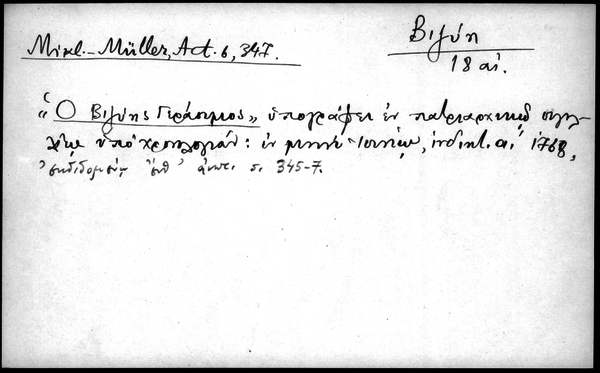 Βιζύη
18 αἰ.
Mikl.-Müller, Act. 6, 347.
"Ὁ Βιζύης Γεράσιμος", ὑπογράφει ἐν πατριαρχικῷ σιγιλ-
λίῳ ὑπὸ χρονολογίαν: ἐν μηνὶ Ἰουνίῳ, ἰνδικτ. α΄ 1768,
ἐκδιδομένῳ σ. 345-7.